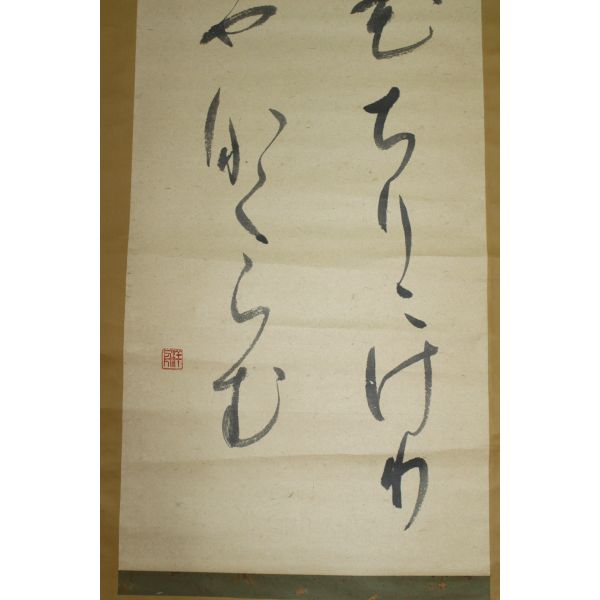 ちりにけり
やなくらむ